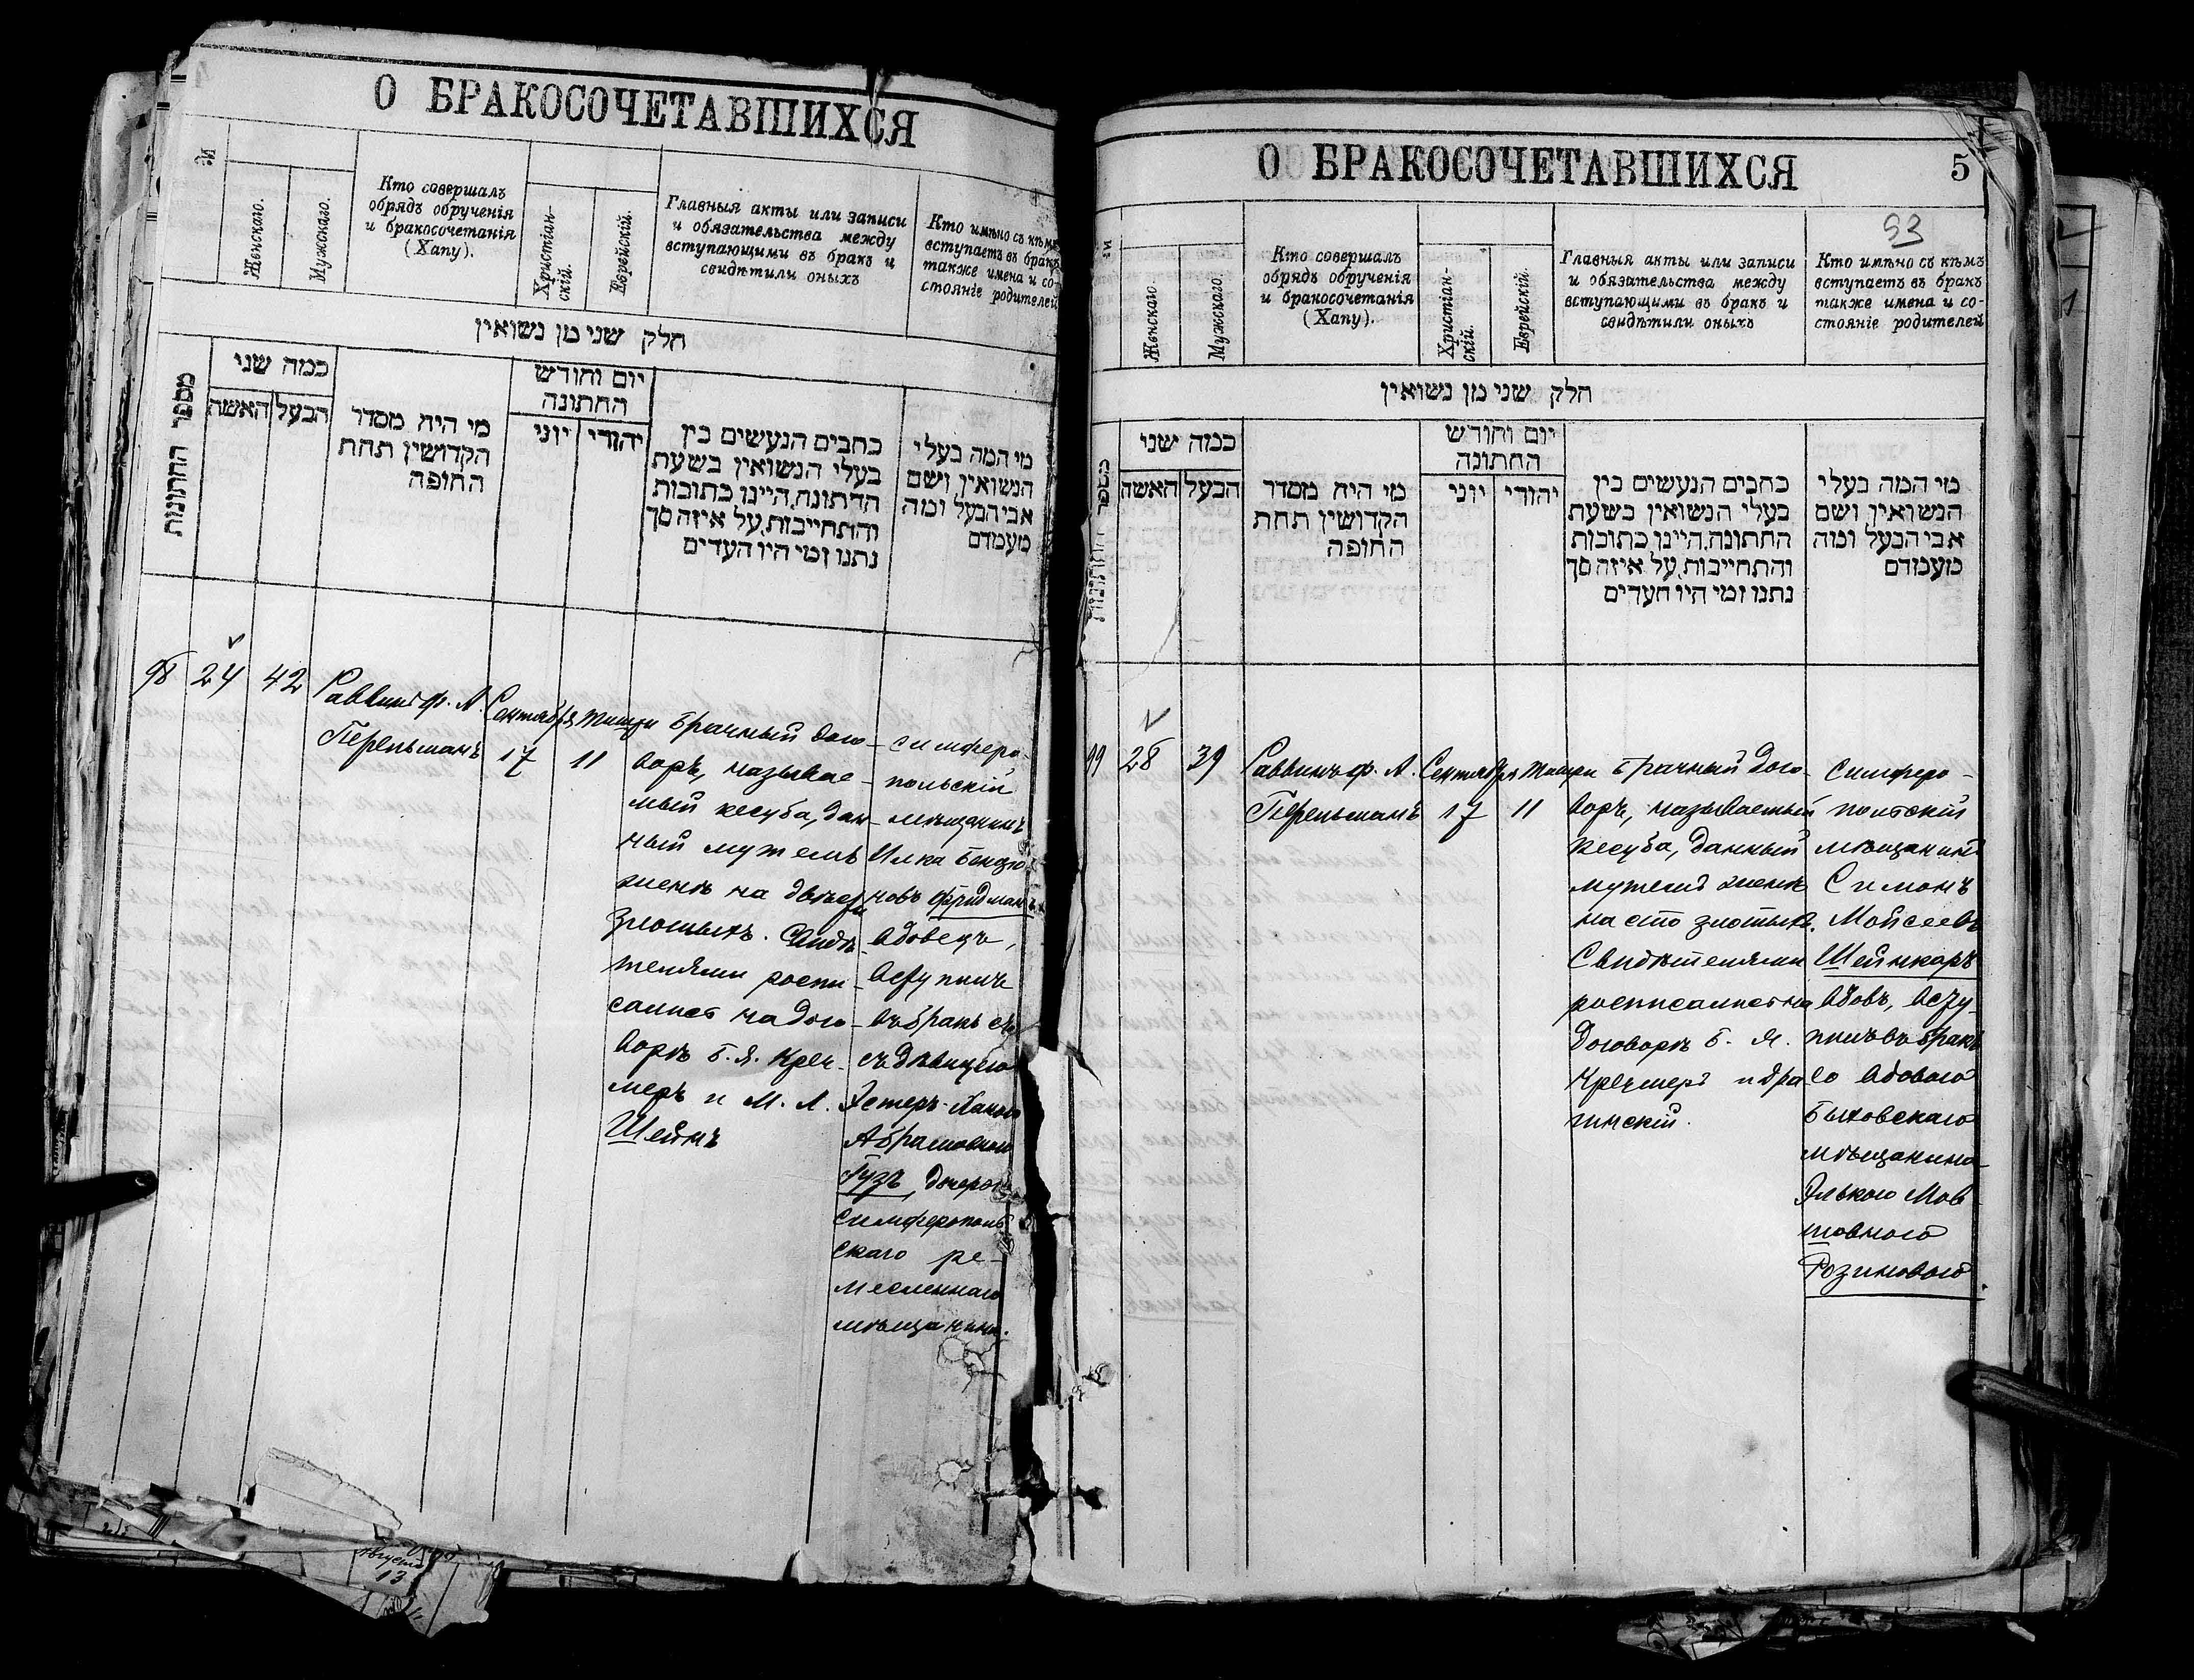 О БРАКОСОЧЕТАВШИХСЯ
№
Женскаго.
Мужскаго.
Кто совершалъ
обрядъ обрученія
и бракосочетанія
(Хапу).
Христіан-
скій.
Еврейскій.
Главныя акты или записи
и обязательства между
вступающими въ бракъ и
свидѣтили оныхъ
Кто имѣно съ кѣмъ
вступаетъ въ бракъ
также имена и со-
стояніе родителей
חלק שני מן נשואין
מספר החתונות
כמה שני
האשה
הבעל
מי היה מסדר
הקדושין תחת
החופה
יום וחודש
החתונה
יוני
יהודי
כתבים הנעשים בין
בעלי הנשואין בשעת
החתונה, היינו כתובות
והתחייבות, על איזה סך
נתנו ומי היו העדים
מי המה בעלי
הנשואין ושם
אבי הבעל ומה
מעמדם
98
24
42
Раввинъ ф. А.
Перельманъ
Сентября
17
Тишри
11
Брачный дого-
воръ, называе-
мый кесуба, дан-
ный мужемъ
женѣ на двѣсти
злотыхъ. Свидѣ-
телями роспи-
сались на дого-
ворѣ Б. Я. Креч-
меръ и М. Л.
Шейнъ
Симферо-
польскій
мѣщанинъ
Илка Бенціо-
новъ Фридманъ
вдовецъ,
вступилъ
въ бракъ
съ дѣвицею
Эстеръ-Ханою
Абрамовною
Гузъ, дочерью
Симферополь
скаго ре-
месленнаго
мѣщанина.
О БРАКОСОЧЕТАВШИХСЯ
5
93
№
Женскаго
Мужскаго.
Кто совершалъ
обрядъ обрученія
и бракосочетанія
(Хапу).
Христіан-
скій.
Еврейскій.
Главныя акты или записи
и обязательства между
вступающими въ бракъ и
свидѣтили оныхъ
Кто имѣно съ кѣмъ
вступаетъ въ бракъ
также имена и со-
стояніе родителей
חלק שני מן נשואין
מספר החתונות
כמה שני
האשה
הבעל
מי היה מסדר
הקדושין תחת
החופה
יום וחודש
החתונה
יוני
יהודי
כתבים הנעשים בין
בעלי הנשואין בשעת
החתונה, היינו כתובות
והתחייבות, על איזה סך
נתנו ומי היו העדים
מי המה בעלי
הנשואין ושם
אבי הבעל ומה
מעמדם
99
28
39
Раввинъ ф. А.
Перельманъ
Сентября
17
Тишри
11
Брачный дого-
воръ, называемый
кесуба, данный
мужемъ женѣ
на сто злотыхъ.
Свидѣтелями
росписались на
договорѣ Б. Я.
Кречмеръ и Дра-
гинскій.
Симферо-
польскій
мѣщанинъ
Симонъ
Мойсеевъ
Шейнкаръ
вдовъ, всту-
пилъ въ бракъ
со вдовою
Быховскаго
мѣщанина
Элькою Мов
шовною
Розиновою.
Августа
13